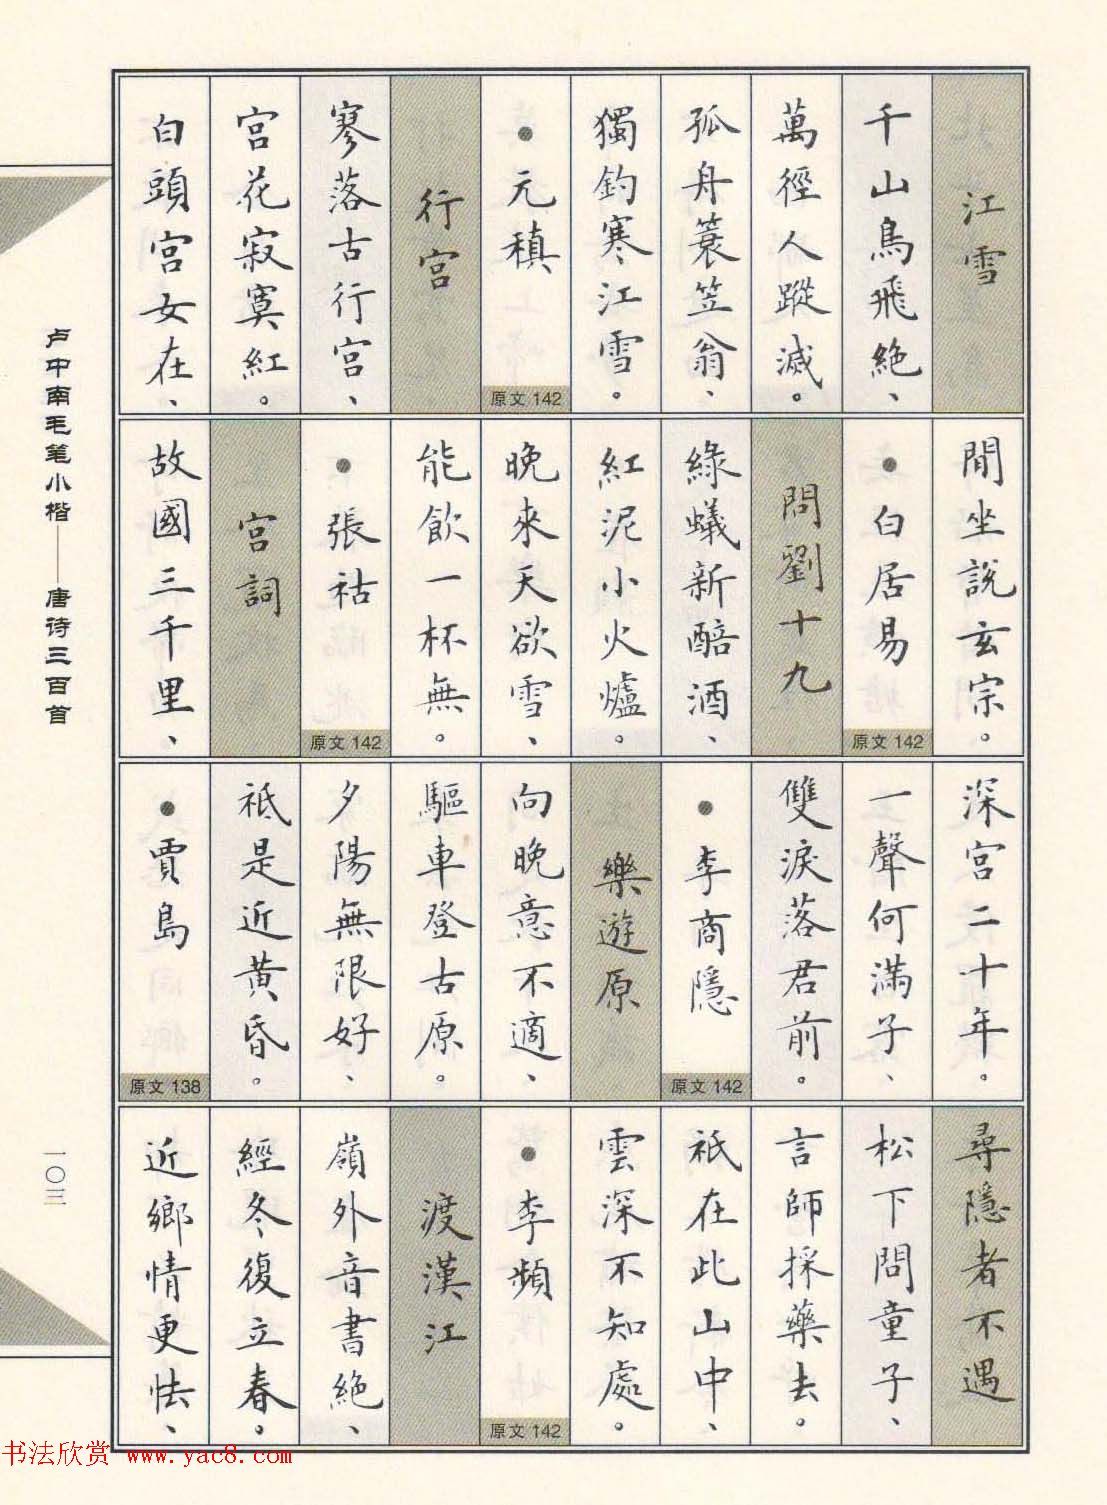 江雪
千山鳥飛絶、
萬徑人蹤滅。
孤舟蓑笠翁、
獨釣寒江雪。
●元稹
原文 142
行宮
寥落古行宮、
宮花寂寞紅。
白頭宮女在、
閒坐說玄宗。
●白居易
原文 142
問劉十九
綠蟻新醅酒、
紅泥小火爐。
晚來天欲雪、
能飲一杯無。
●張祜
原文 142
宮詞
故國三千里、
深宮二十年。
一聲何滿子、
雙淚落君前。
●李商隱
原文 142
樂遊原
向晚意不適、
驅車登古原。
夕陽無限好、
祗是近黃昏。
●賈島
原文 138
尋隱者不遇
松下問童子、
言師採藥去。
祇在此山中、
雲深不知處。
●李頻
原文 142
渡漢江
嶺外音書絶、
經冬復立春。
近鄉情更怯、
卢中南毛笔小楷——唐诗三百首
一〇三
书法欣赏 www.yac8.com